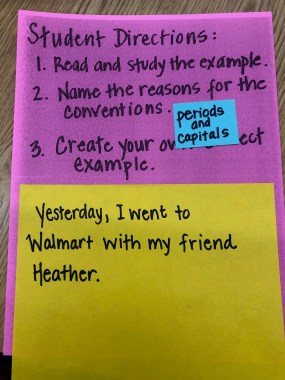 Student Directions:
1. Read and study the example.
2. Name the reasons for the
conventions.
periods
and
capitals
3. Create your
example.
Yesterday, I went to
Walmart with my friend
Heather.